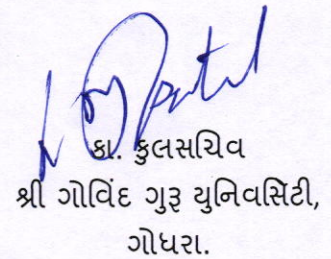 કા. કુલસચિવ
શ્રી ગોવિંદ ગુરૂ યુનિવર્સિટી,
ગોધરા.